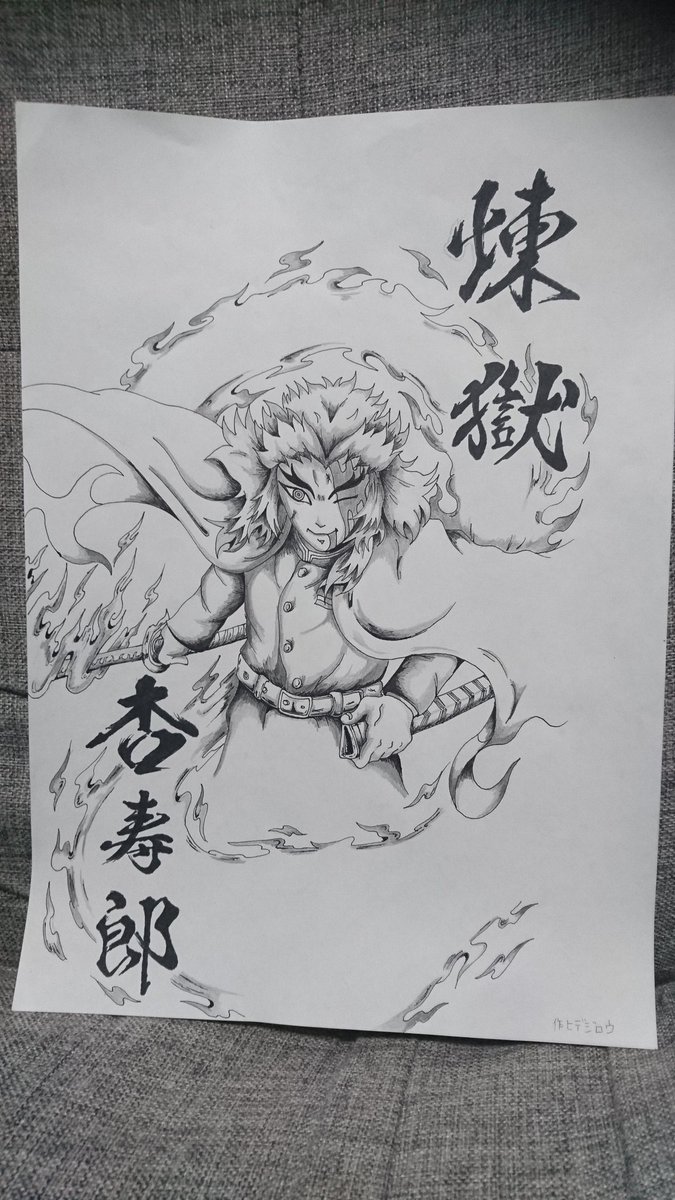 煉獄
杏寿郎
作ヒデジロウ